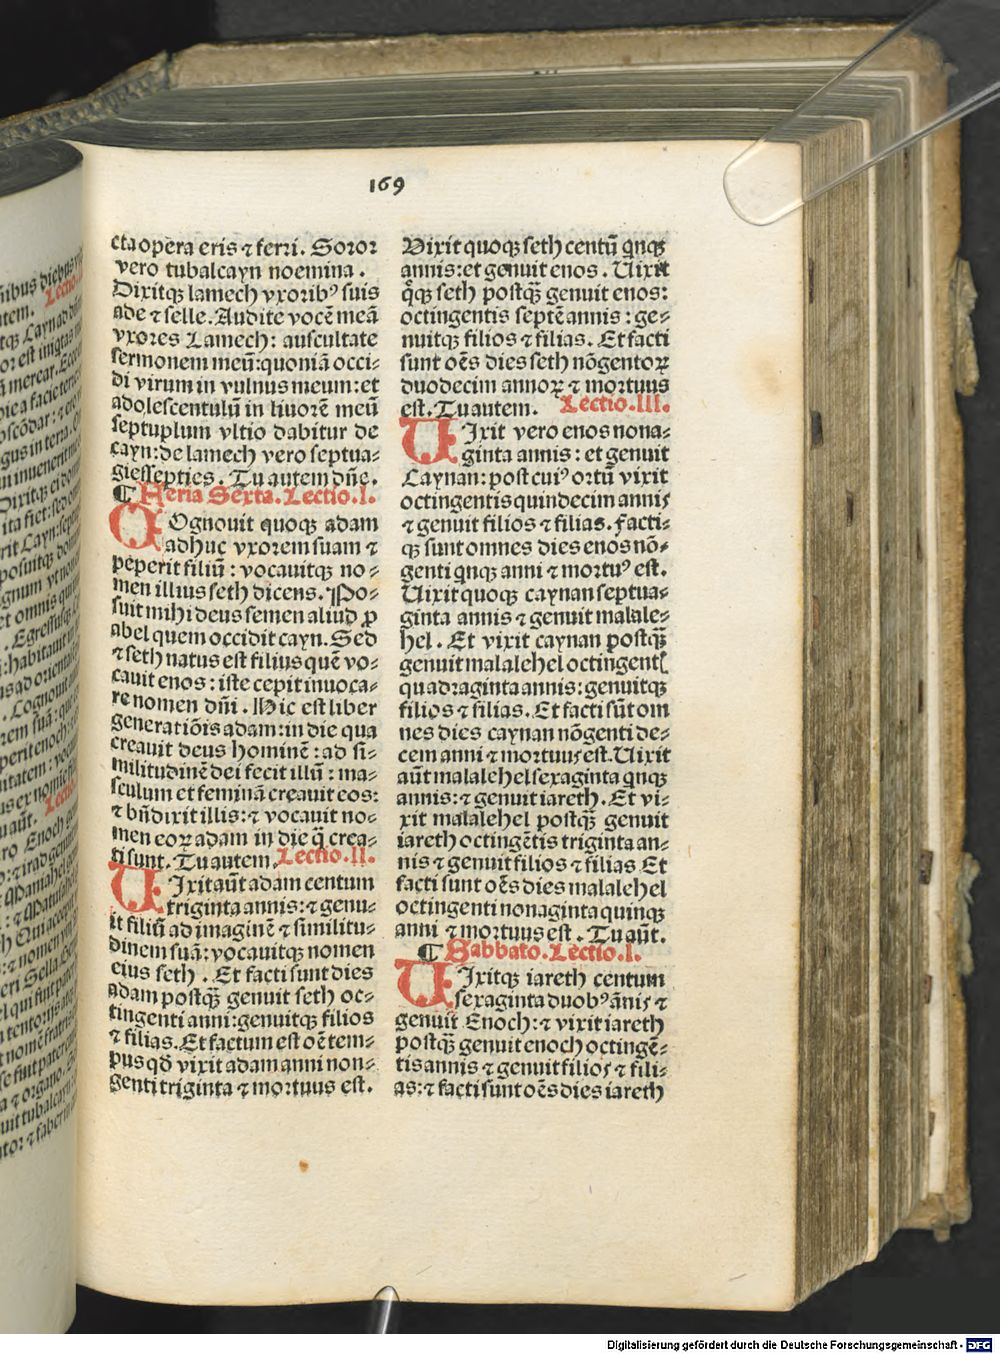 169
cta opera eris ⁊ ferri. Soror
vero tubalcayn noemina.
Dixitqꝫ lamech vxoribꝰ suis
ade ⁊ selle. Audite vocē meā
vxores Lamech: auscultate
sermonem meū: quoniā occi⸗
di virum in vulnus meum: et
adolescentulū in liuorē meū
septuplum vltio dabitur de
cayn: de lamech vero septua⸗
giessepties. Tu autem dn̄e.
¶ Feria Sexta. Lectio. I.
COgnouit quoqꝫ adam
adhuc vxorem suam ⁊
peperit filiū: vocauitqꝫ no⸗
men illius seth dicens. Po⸗
suit mihi deus semen aliud ꝓ
abel quem occidit cayn. Sed
⁊ seth natus est filius quē vo⸗
cauit enos: iste cepit inuoca⸗
re nomen dn̄i. Hic est liber
generatiōis adam: in die qua
creauit deus hominē: ad si⸗
militudinē dei fecit illū: ma⸗
sculum et feminā creauit eos:
⁊ bn̄dixit illis: ⁊ vocauit no⸗
men eoꝝ adam in die q̄ crea⸗
ti sunt. Tu autem. Lectio. II.
UIxit aūt adam centum
triginta annis: ⁊ genu⸗
it filiū ad imaginē ⁊ similitu⸗
dinem suā: vocauitqꝫ nomen
eius seth. Et facti sunt dies
adam postqꝫ̄ genuit seth oc⸗
tingenti anni: genuitqꝫ filios
⁊ filias. Et factum est oē tem⸗
pus qd̄ vixit adam anni non⸗
genti triginta ⁊ mortuus est.
Vixit quoqꝫ seth centū qnqꝫ
annis: et genuit enos. Uixit
q̊qꝫ seth postqꝫ̄ genuit enos:
octingentis septē annis: ge⸗
nuitqꝫ filios ⁊ filias. Et facti
sunt oēs dies seth nōgentoꝝ
duodecim annoꝝ ⁊ mortuus
est. Tu autem. Lectio. III.
UIxit vero enos nona⸗
ginta annis: et genuit
Caynan: post cuiꝰ ortū vixit
octingentis quindecim annis
⁊ genuit filios ⁊ filias. facti⸗
qꝫ sunt omnes dies enos nō⸗
genti qnqꝫ anni ⁊ mortuꝰ est.
Uixit quoqꝫ caynan septua⸗
ginta annis ⁊ genuit malale⸗
hel. Et vixit caynan postqꝫ̄
genuit malalehel octingentꝭ
quadraginta annis: genuitqꝫ
filios ⁊ filias. Et facti sūt om
nes dies caynan nōgenti de⸗
cem anni ⁊ mortuus est. Uixit
aūt malalehel sexaginta qnqꝫ
annis: ⁊ genuit iareth. Et vi⸗
xit malalehel postqꝫ̄ genuit
iareth octingētis triginta an⸗
nis ⁊ genuit filios ⁊ filias Et
facti sunt oēs dies malalehel
octingenti nonaginta quinqꝫ
anni ⁊ mortuus est. Tu aūt.
¶ Sabbato. Lectio. I.
UIxitqꝫ iareth centum
sexaginta duobꝰ ānis ⁊
genuit Enoch: ⁊ vixit iareth
postqꝫ̄ genuit enoch octingē⸗
tis annis ⁊ genuit filios ⁊ fili⸗
as: ⁊ facti sunt oēs dies iareth
Digitalisierung gefördert durch die Deutsche Forschungsgemeinschaft - DFG